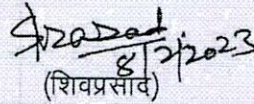 8/2/2023
(शिवप्रसाद)